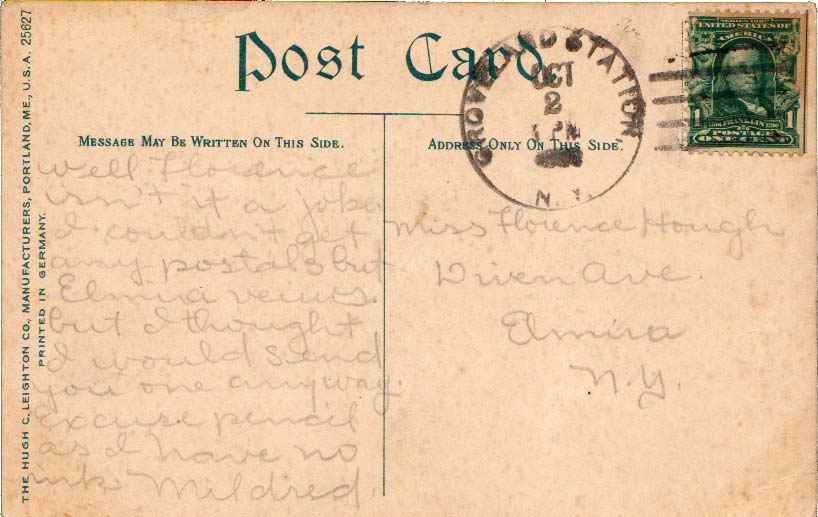 THE HUGH C. LEIGHTON CO., MANUFACTURERS, PORTLAND, ME., U.S.A. 25627
PRINTED IN GERMANY.
Post Card.
MESSAGE MAY BE WRITTEN ON THIS SIDE.
ADDRESS ONLY ON THIS SIDE.
GROVELAND STATION,
OCT
2
PM
N.Y.
UNITED STATES OF
AMERICA
1 FRANKLIN 1
POSTAGE
ONE CENT
Well Florence
isn't it a joke
I couldn't get
any postals but
Elmira veiws.
but I thought
I would send
you one anyway.
excuse pencil
as I have no
ink. Mildred.
Miss Florence Hough
Diven Ave.
Elmira
N.Y.